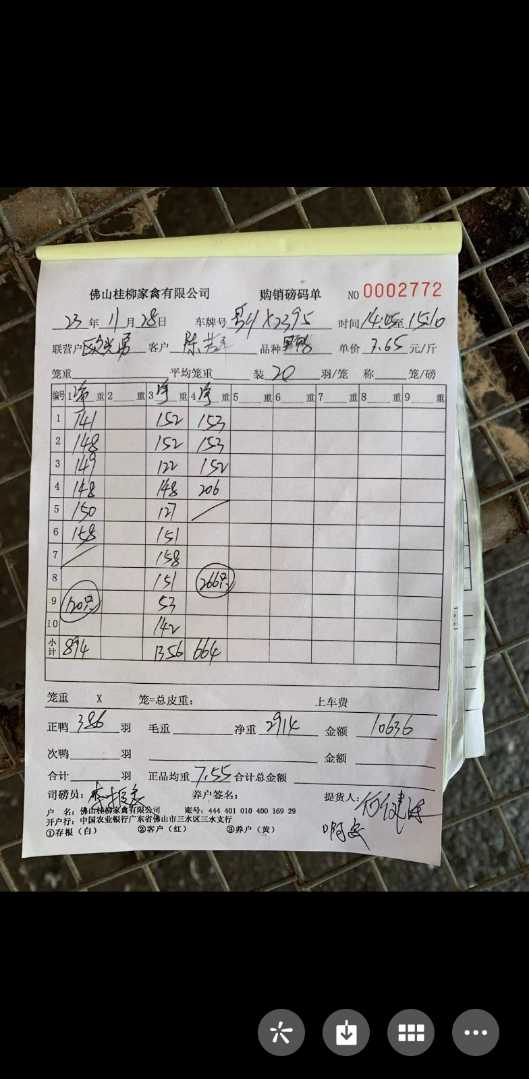 佛山桂柳家禽有限公司 购销磅码单 NO 0002772
23 年 11 月 28 日 车牌号 X2395 时间 14:05 至 15:10
联营户 客户 陈 品种 单价 3.65 元/斤
笼重 平均笼重 装 20 羽/笼 称 笼/磅
编号 1 净重 2 重 3 净重 4 净重 5 重 6 重 7 重 8 重 9 重
1 141 152 153
2 148 152 153
3 149 122 152
4 148 148 206
5 150 127
6 158 151
7 158
8 151 266只
9 120只 53
10 142
小计 894 1356 664
笼重 X 笼=总皮重: 上车费
正鸭 386 羽 毛重 净重 2914 金额 10636
次鸭 羽 金额
合计 羽 正品均重 7.55 合计总金额
司磅员: 养户签名: 提货人:
户 名: 佛山桂柳家禽有限公司 账号: 444 401 010 400 169 29
开户行: 中国农业银行广东省佛山市三水区三水支行
①存根(白) ②客户(红) ③养户(黄)